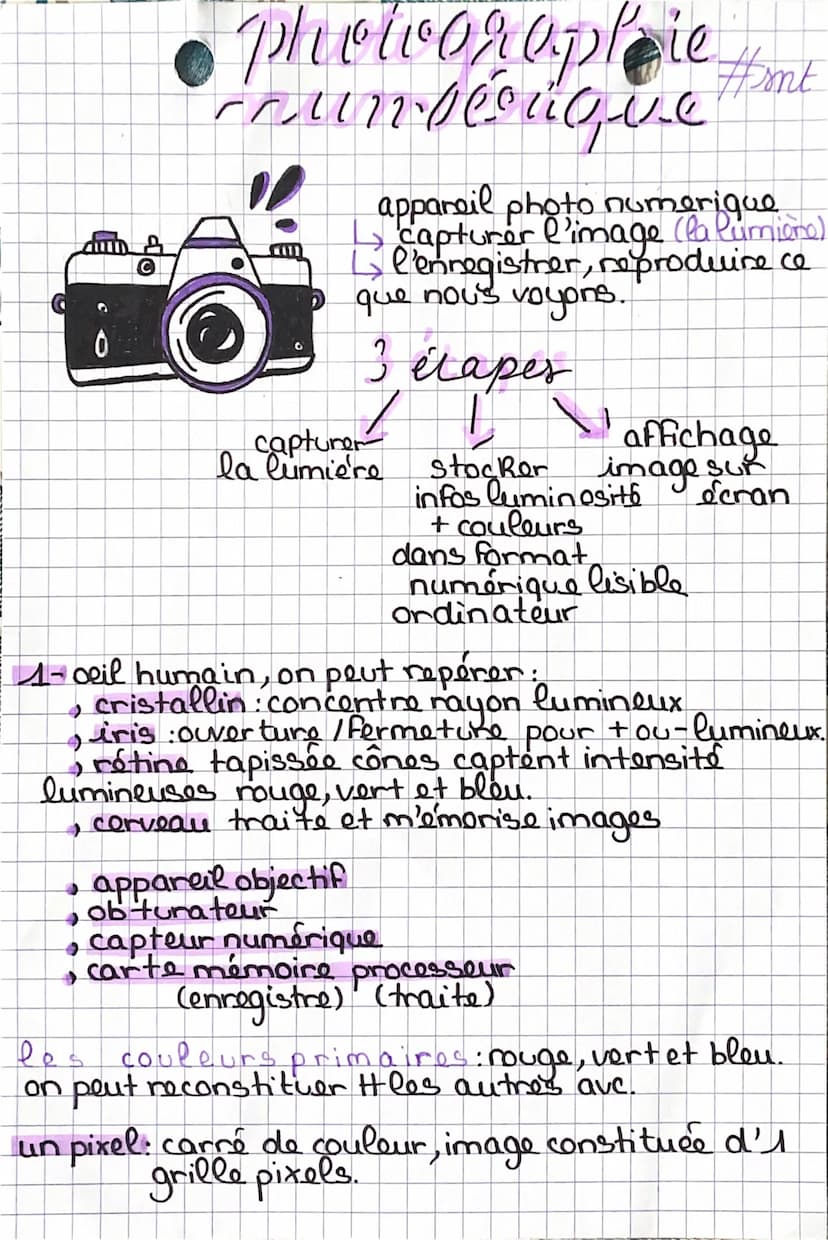 photographie
numérique
#snt
appareil photo numerique
↳ capturer l'image (la lumière)
↳ l'enregistrer, reproduire ce
que nous voyons.
3 étapes
capturer
la lumière
stocker
infos luminosité
+ couleurs
dans format
numérique lisible
ordinateur
affichage
image sur
écran
1- oeil humain, on peut repérer :
, cristallin : concentre rayon lumineux
, iris : ouverture / fermeture pour + ou - lumineux.
, rétine tapissée cônes captent intensité
lumineuses rouge, vert et bleu.
, cerveau traite et mémorise images
, appareil objectif
, obturateur
, capteur numérique
, carte mémoire processeur
(enregistre) (traite)
les couleurs primaires : rouge, vert et bleu.
on peut reconstituer tt les autres avc.
un pixel : carré de couleur, image constituée d'1
grille pixels.